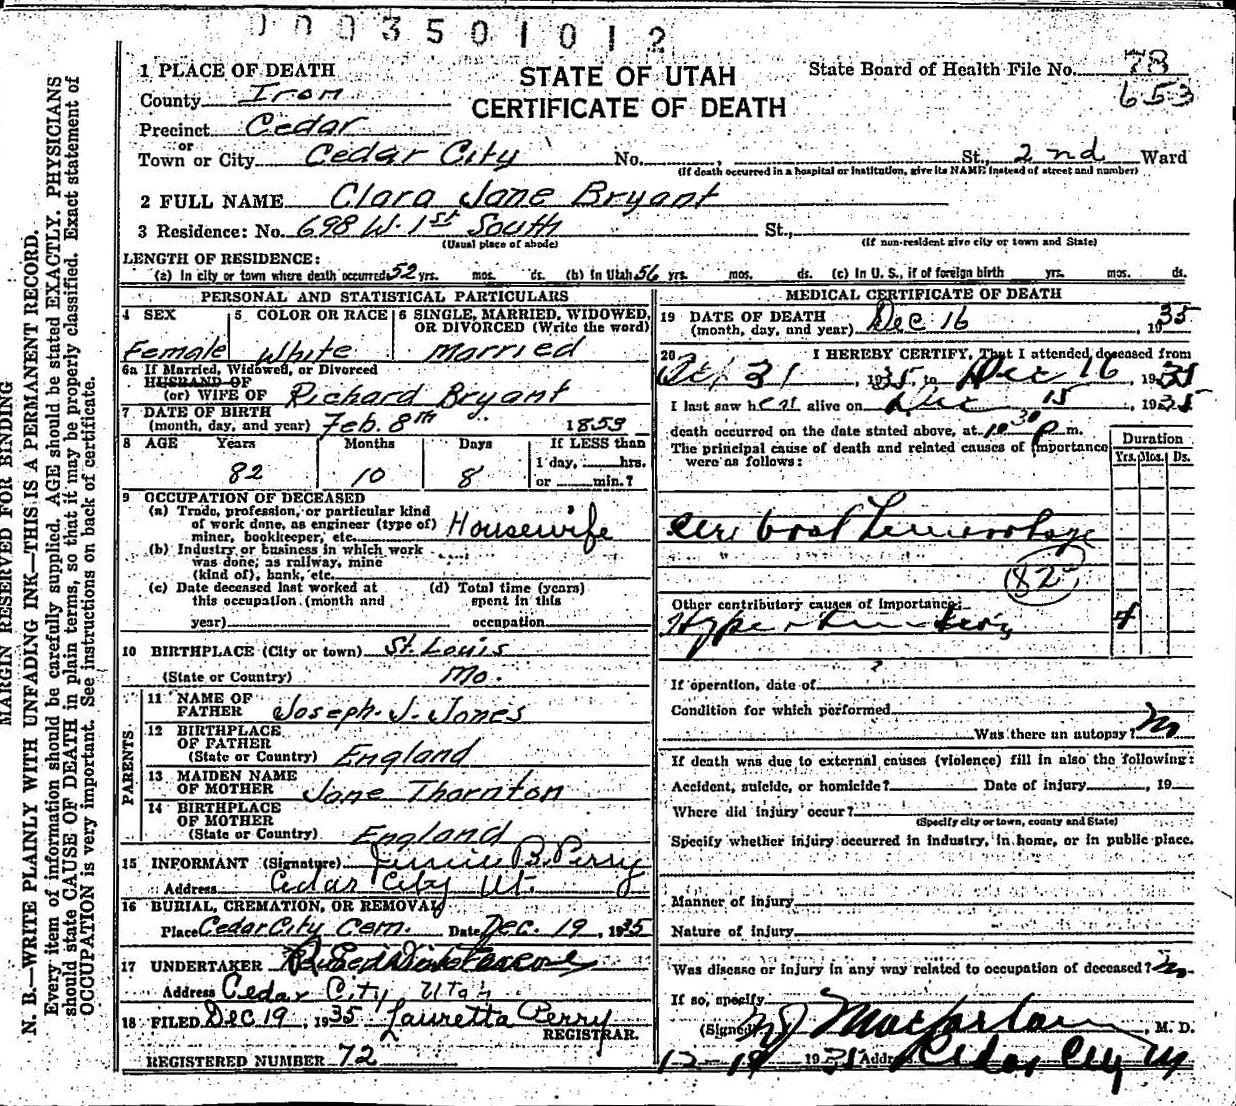 0003501012
STATE OF UTAH
CERTIFICATE OF DEATH
State Board of Health File No. 78
653
1 PLACE OF DEATH
County Iron
Precinct Cedar
or
Town or City Cedar City No. , St., 2nd Ward
(If death occurred in a hospital or institution, give its NAME instead of street and number)
2 FULL NAME Clara Jane Bryant
3 Residence: No. 698 W. 1st South St.,
(Usual place of abode) (If non-resident give city or town and State)
LENGTH OF RESIDENCE:
(a) In city or town where death occurred 52 yrs. mos. ds. (b) In Utah 56 yrs. mos. ds. (c) In U. S., if of foreign birth yrs. mos. ds.
PERSONAL AND STATISTICAL PARTICULARS
4 SEX 5 COLOR OR RACE 6 SINGLE, MARRIED, WIDOWED, OR DIVORCED (Write the word)
Female White Married
6a If Married, Widowed, or Divorced
HUSBAND OF
(or) WIFE OF Richard Bryant
7 DATE OF BIRTH
(month, day, and year) Feb. 8th 1853
8 AGE Years Months Days If LESS than
82 10 8 1 day, hrs.
or min.?
9 OCCUPATION OF DECEASED
(a) Trade, profession, or particular kind
of work done, as engineer (type of)
miner, bookkeeper, etc. Housewife
(b) Industry or business in which work
was done; as railway, mine
(kind of), bank, etc.
(c) Date deceased last worked at
this occupation (month and
year)
(d) Total time (years)
spent in this
occupation
10 BIRTHPLACE (City or town) St. Louis
(State or Country) Mo.
PARENTS
11 NAME OF
FATHER Joseph. J. Jones
12 BIRTHPLACE
OF FATHER
(State or Country) England
13 MAIDEN NAME
OF MOTHER Jane Thornton
14 BIRTHPLACE
OF MOTHER
(State or Country) England
15 INFORMANT (Signature) Jennie B. Perry
Address Cedar City Ut.
16 BURIAL, CREMATION, OR REMOVAL
Place Cedar City Cem. Date Dec. 19, 1935
17 UNDERTAKER
Address Cedar City Utah
18 FILED Dec 19, 1935 Lauretta Perry
REGISTRAR.
REGISTERED NUMBER 72
MEDICAL CERTIFICATE OF DEATH
19 DATE OF DEATH
(month, day, and year) Dec 16, 1935
20 I HEREBY CERTIFY, That I attended deceased from
Oct 31, 1935, to Dec 16, 1935
I last saw her alive on Dec 15, 1935
death occurred on the date stated above, at 10 30 P. m.
The principal cause of death and related causes of importance
were as follows:
Duration
Yrs. Mos. Ds.
Cerebral Hemorrhage
82
Other contributory causes of importance:
Hypertension 4
If operation, date of
Condition for which performed
Was there an autopsy? No
If death was due to external causes (violence) fill in also the following:
Accident, suicide, or homicide? Date of injury , 19
Where did injury occur?
(Specify city or town, county and State)
Specify whether injury occurred in industry, in home, or in public place.
Manner of injury
Nature of injury
Was disease or injury in any way related to occupation of deceased? No
If so, specify
(Signed) M J Macfarlane, M. D.
12-18 1935 Address Cedar City Ut
MARGIN RESERVED FOR BINDING
N. B.—WRITE PLAINLY WITH UNFADING INK—THIS IS A PERMANENT RECORD.
Every item of information should be carefully supplied. AGE should be stated EXACTLY. PHYSICIANS
should state CAUSE OF DEATH in plain terms, so that it may be properly classified. Exact statement of
OCCUPATION is very important. See instructions on back of certificate.